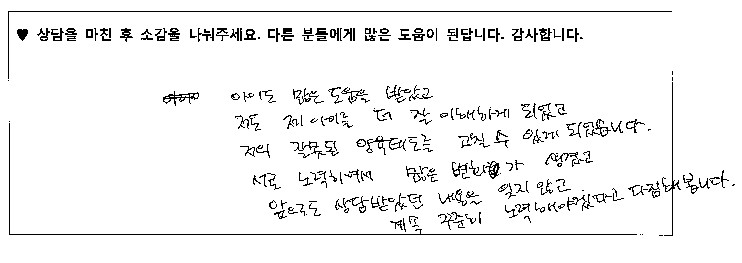 ♥ 상담을 마친 후 소감을 나눠주세요. 다른 분들에게 많은 도움이 된답니다. 감사합니다.
아이도 많은 도움을 받았고
저도 제 아이를 더 잘 이해하게 되었고
저의 잘못된 양육태도를 고칠 수 있게 되었습니다.
서로 노력하여서 많은 변화가 생겼고
앞으로도 상담받았던 내용을 잊지 않고
계속 꾸준히 노력해야겠다고 다짐해 봅니다.